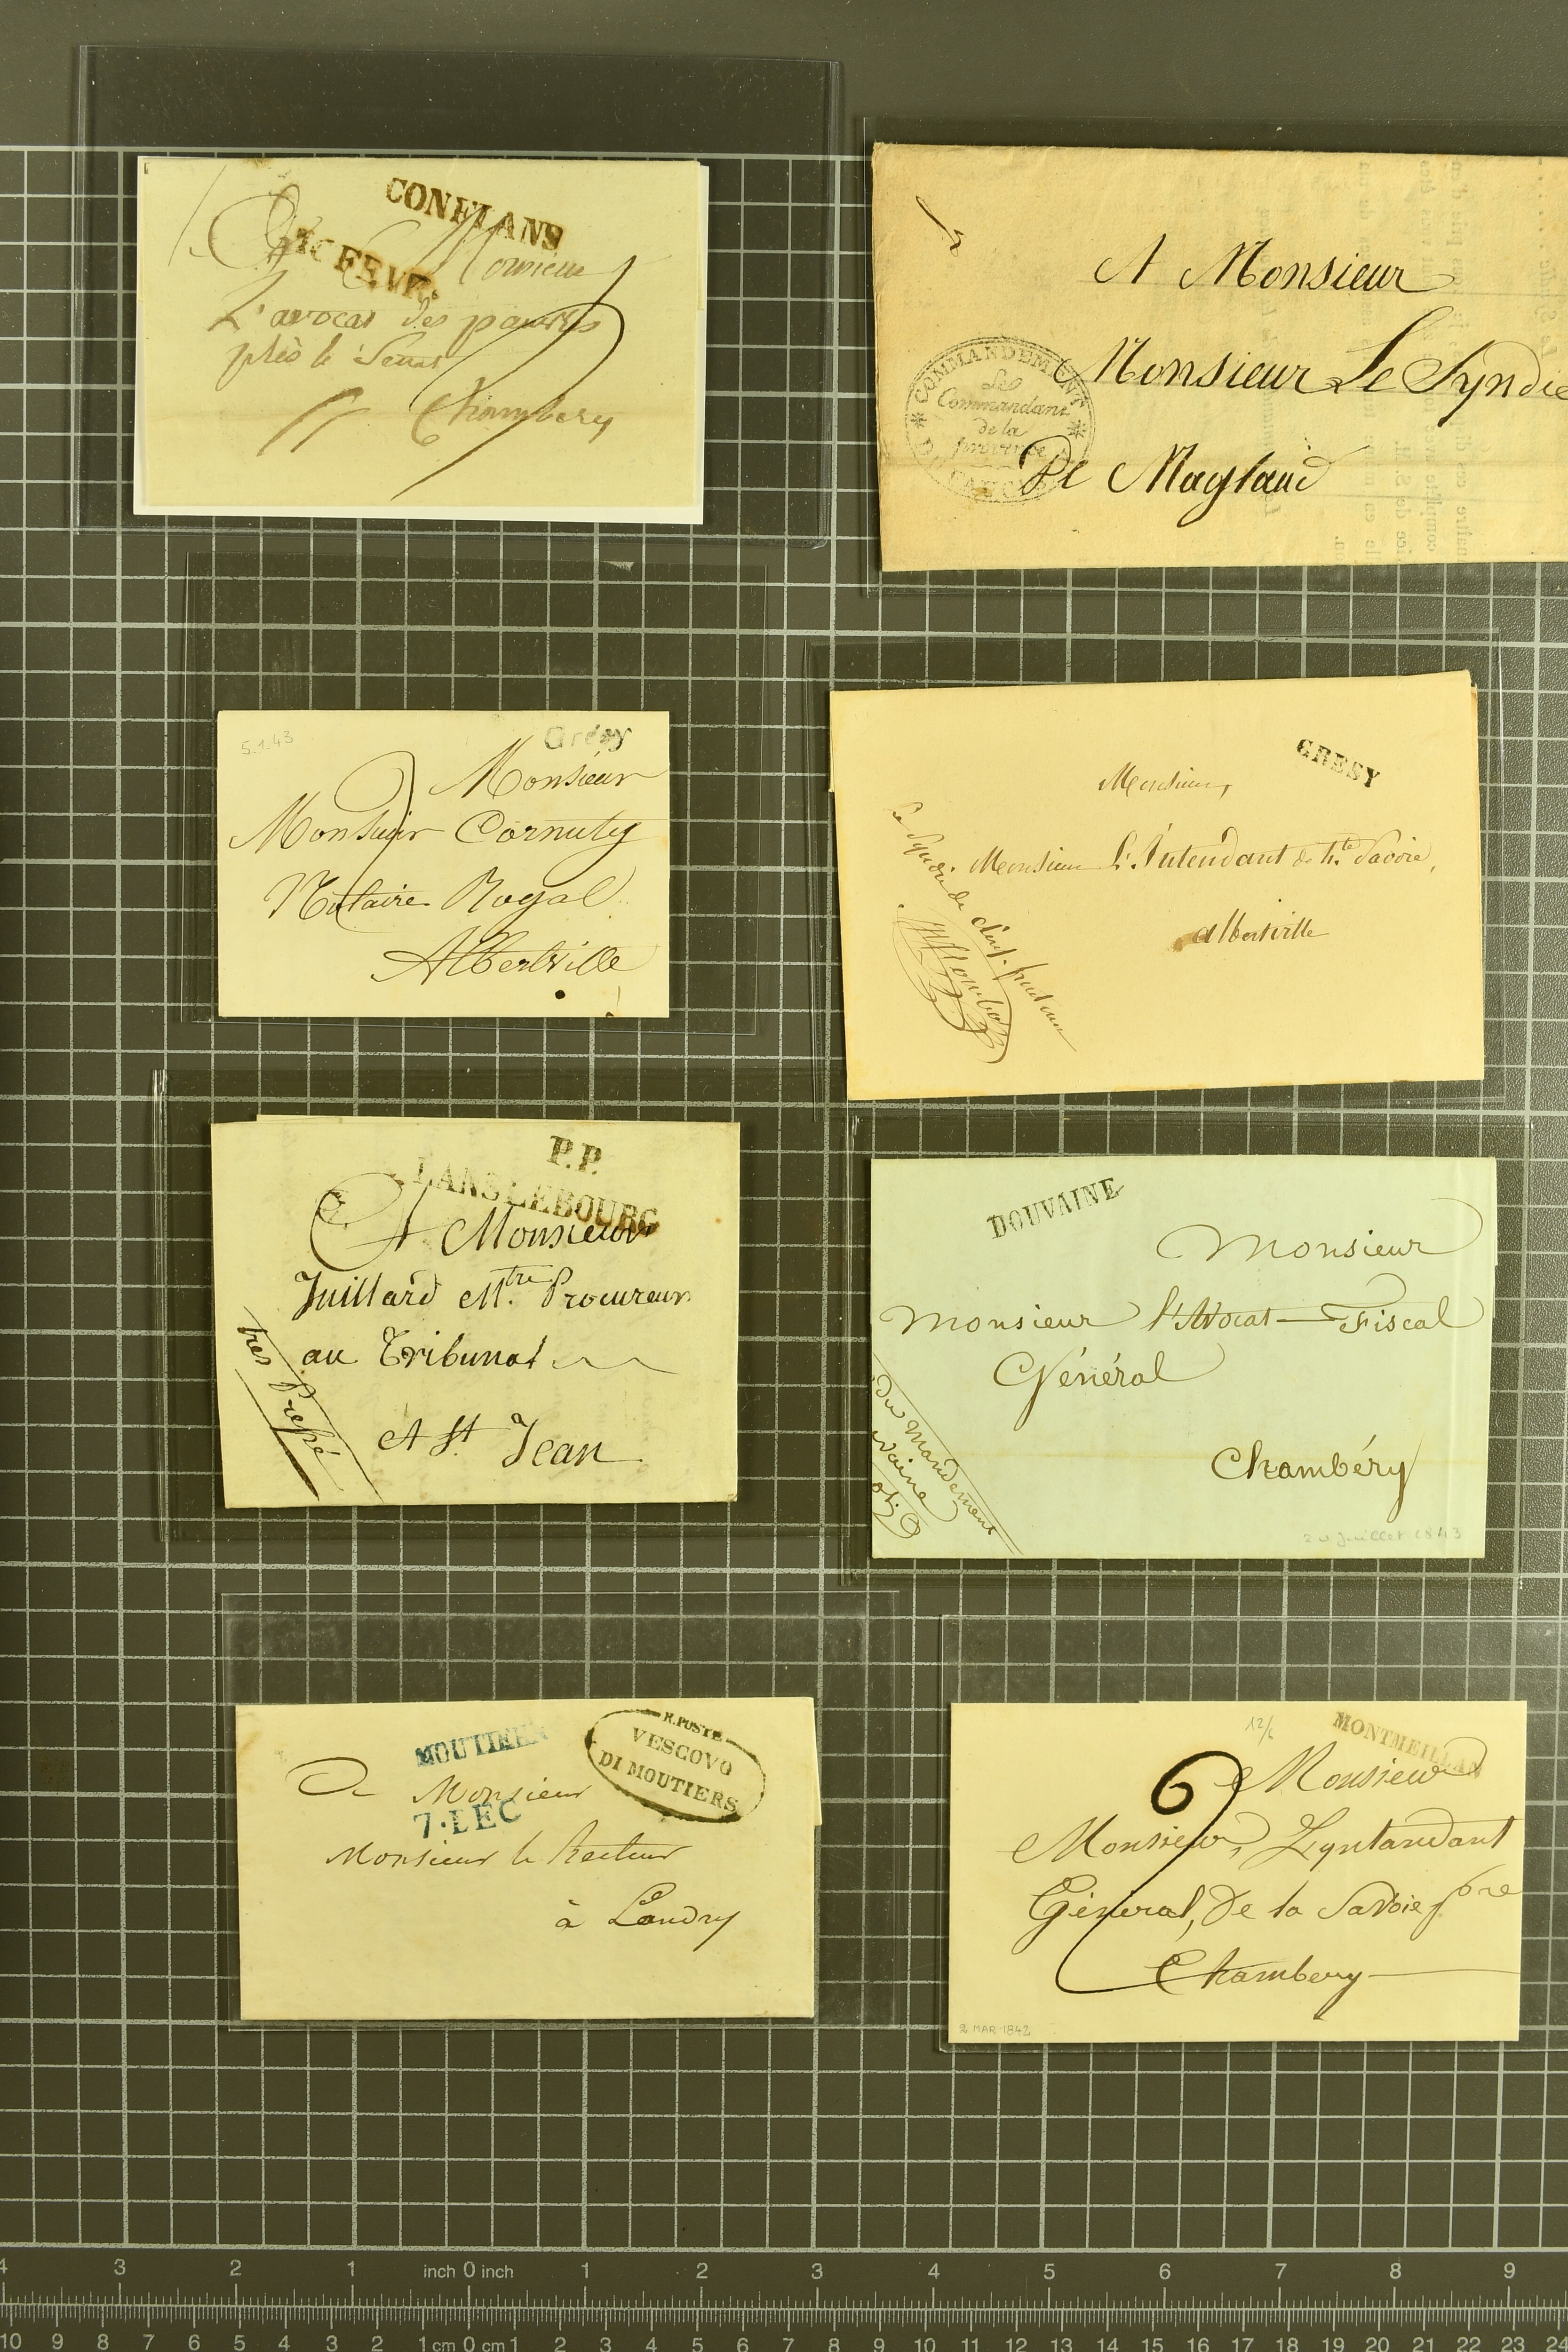 CONFLANS
FEVR.
A Monsieur
L'avocat des pauvres
près le Senat
Chambery
A Monsieur
Monsieur Le Syndic
De Magland
COMMANDEMENT
Le
Commandant
de la
province
5.1.43
Grésy
Monsieur
Monsieur Cornuty
Notaire Royal
Albertville
GRESY
Monsieur,
Monsieur L'Intendant de hte Savoie,
albertville
Le Syndic de
P.P.
LANSLEBOURG
A Monsieur
Juillard Mtre Procureur
au Tribunal
A St Jean
tres Pressé
DOUVAINE
Monsieur
Monsieur l'Avocat Fiscal
Général
Chambéry
du Mandement
vaine
20 juillet 1843
MOUTIERS
R. POSTE
VESCOVO
DI MOUTIERS
A Monsieur
7. DEC
Monsieur le Recteur
à Landry
12/6
MONTMEILLAN
6
Monsieur
Monsieur, Lyntandant
Géneral, De la Savoie pbre
Chambery
2 MAR 1842
4 3 2 1 inch 0 inch 1 2 3 4 5 6 7 8 9
10 9 8 7 6 5 4 3 2 1 cm 0 cm 1 2 3 4 5 6 7 8 9 10 11 12 13 14 15 16 17 18 19 20 21 22 23 24